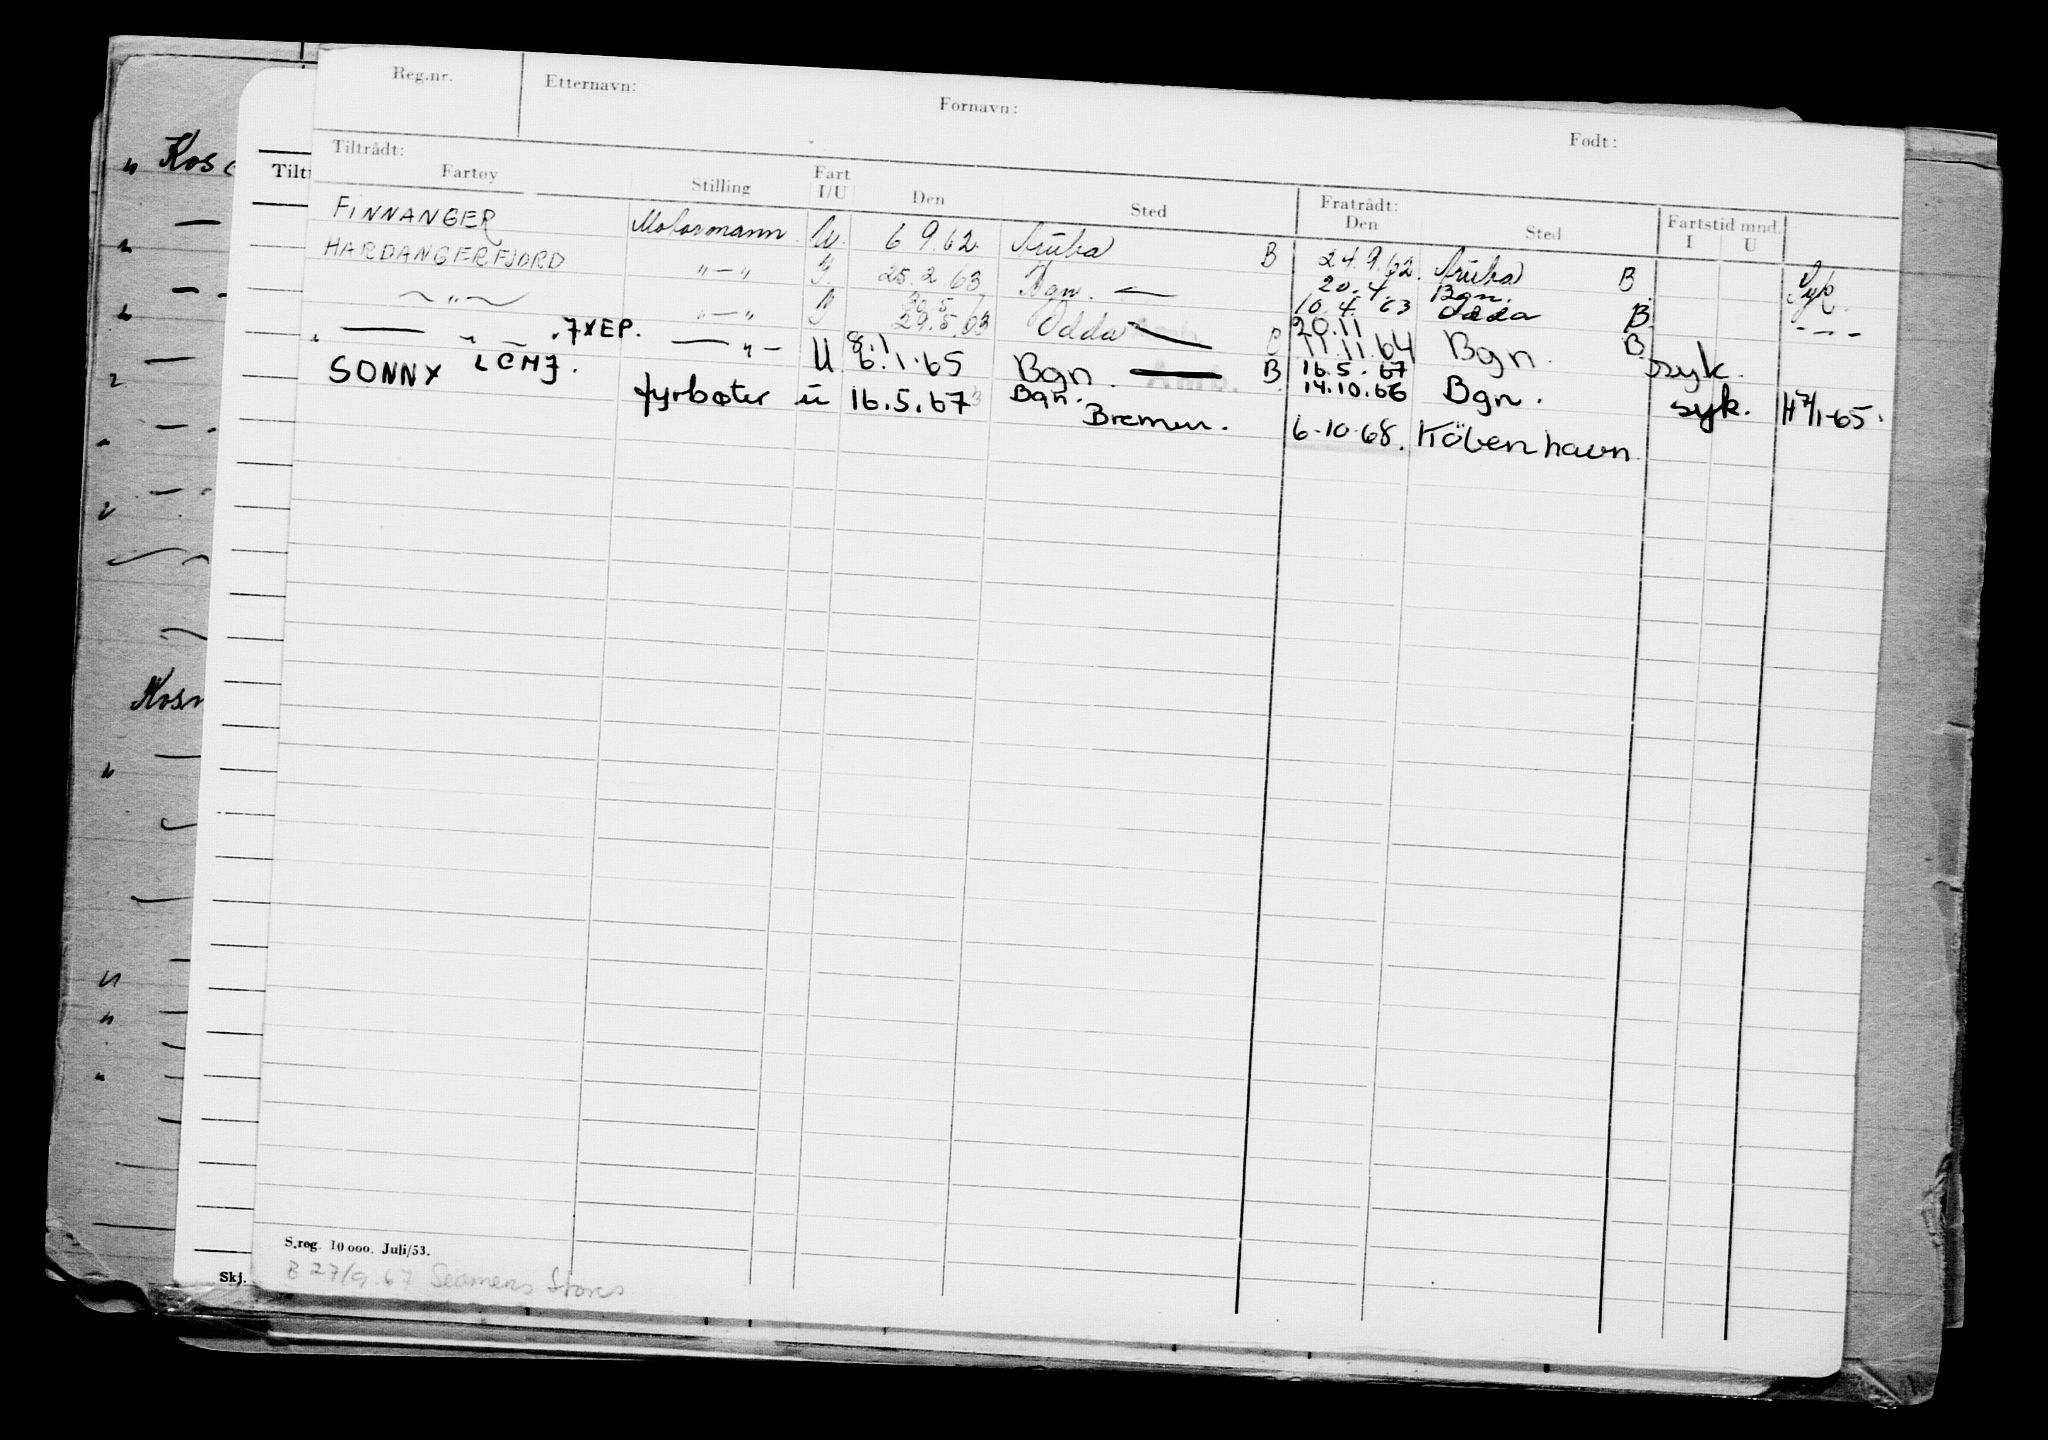 Reg.nr. Etternavn: Fornavn: Født:
Tiltrådt: Fratrådt: Fartstid mnd.
Fartøy Stilling Fart I/U Den Sted Den Sted I U
FINNANGER Motormann U. 6 9.62. Aruba B 24.9.62. Aruba B Syk
HARDANGERFJORD "—" 25.2.63 Bgn. — 20.4. Bgn.
—"— "—" 29.5.63 Odda 10.4.63 Odda B - - -
20.11
— " — .7XEP. — " — U 8.1 6.1.65 Bgn. — B 11.11.64 Bgn. B syk.
SONNY LCHJ. fyrbøter u 16.5.67 Bgn. 16.5.67
Bremen. 14.10.66 Bgn. syk. H 7/1-65.
6-10-68. Köbenhavn
S.reg. 10 000. Juli/53.
B 27/9.67 Seamens Stores
Tilt
Skj.
" Kos
Kosn